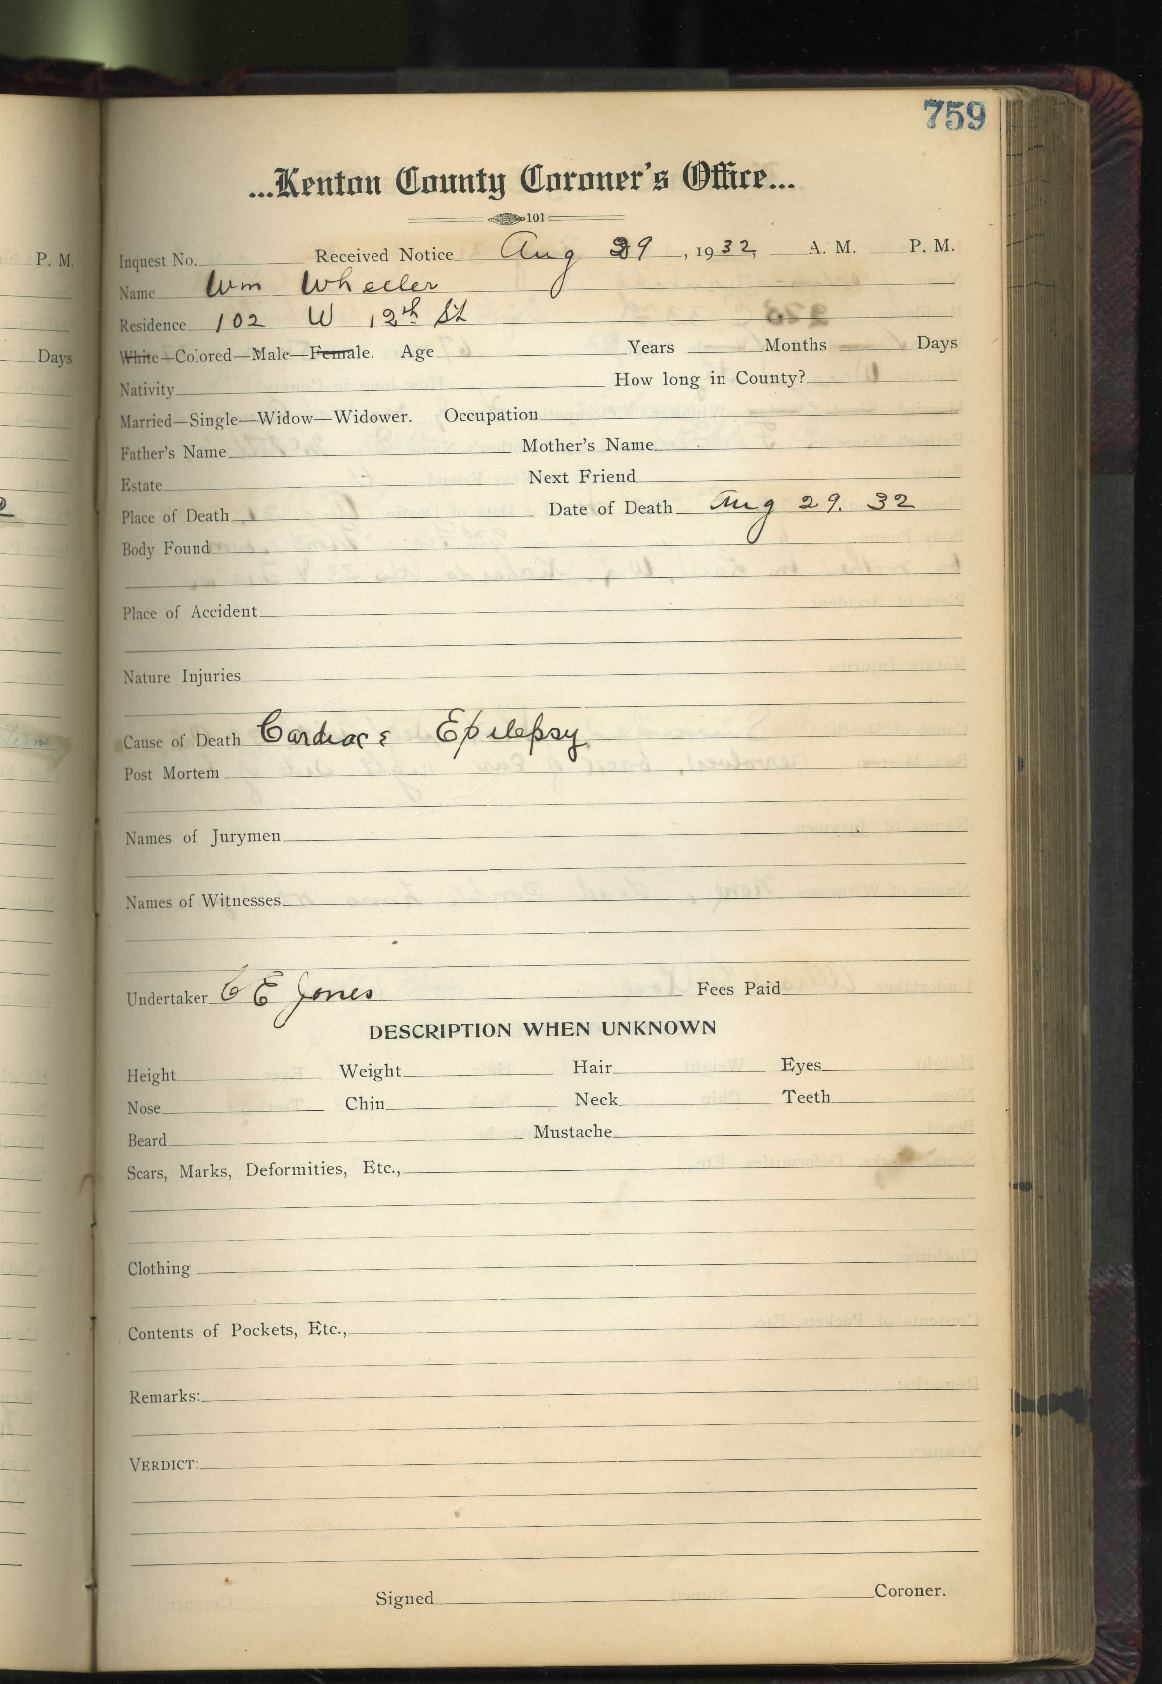 759
...Kenton County Coroner's Office...
101
P. M.
Inquest No. Received Notice Aug 29, 1932, A. M. P. M.
Name Wm Wheeler
Residence 102 W 12th St
Days
White—Colored—Male—Female. Age Years Months Days
Nativity How long in County?
Married—Single—Widow—Widower. Occupation
Father's Name Mother's Name
Estate Next Friend
Place of Death Date of Death Aug 29. 32
Body Found
Place of Accident
Nature Injuries
Cause of Death Cardiac & Epilepsy
Post Mortem
Names of Jurymen
Names of Witnesses
Undertaker C E Jones Fees Paid
DESCRIPTION WHEN UNKNOWN
Height Weight Hair Eyes
Nose Chin Neck Teeth
Beard Mustache
Scars, Marks, Deformities, Etc.,
Clothing
Contents of Pockets, Etc.,
Remarks:
VERDICT:
Signed Coroner.